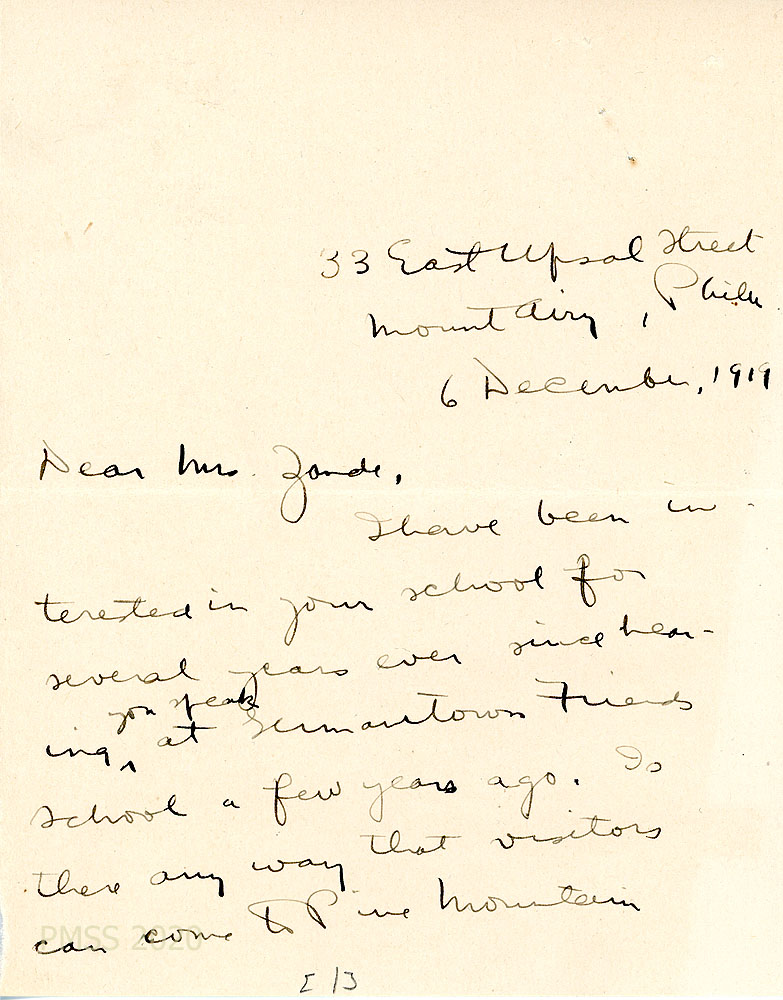 33 East Upsal Street
Mount Airy, Phila.
6 December, 1919
Dear Mrs. Zande,
I have been in-
terested in your school for
several years ever since hear-
you speak
ing ^ at Germantown Friends
School a few years ago. Is
there any way that visitors
can come to Pine Mountain
PMSS 2020
[1]